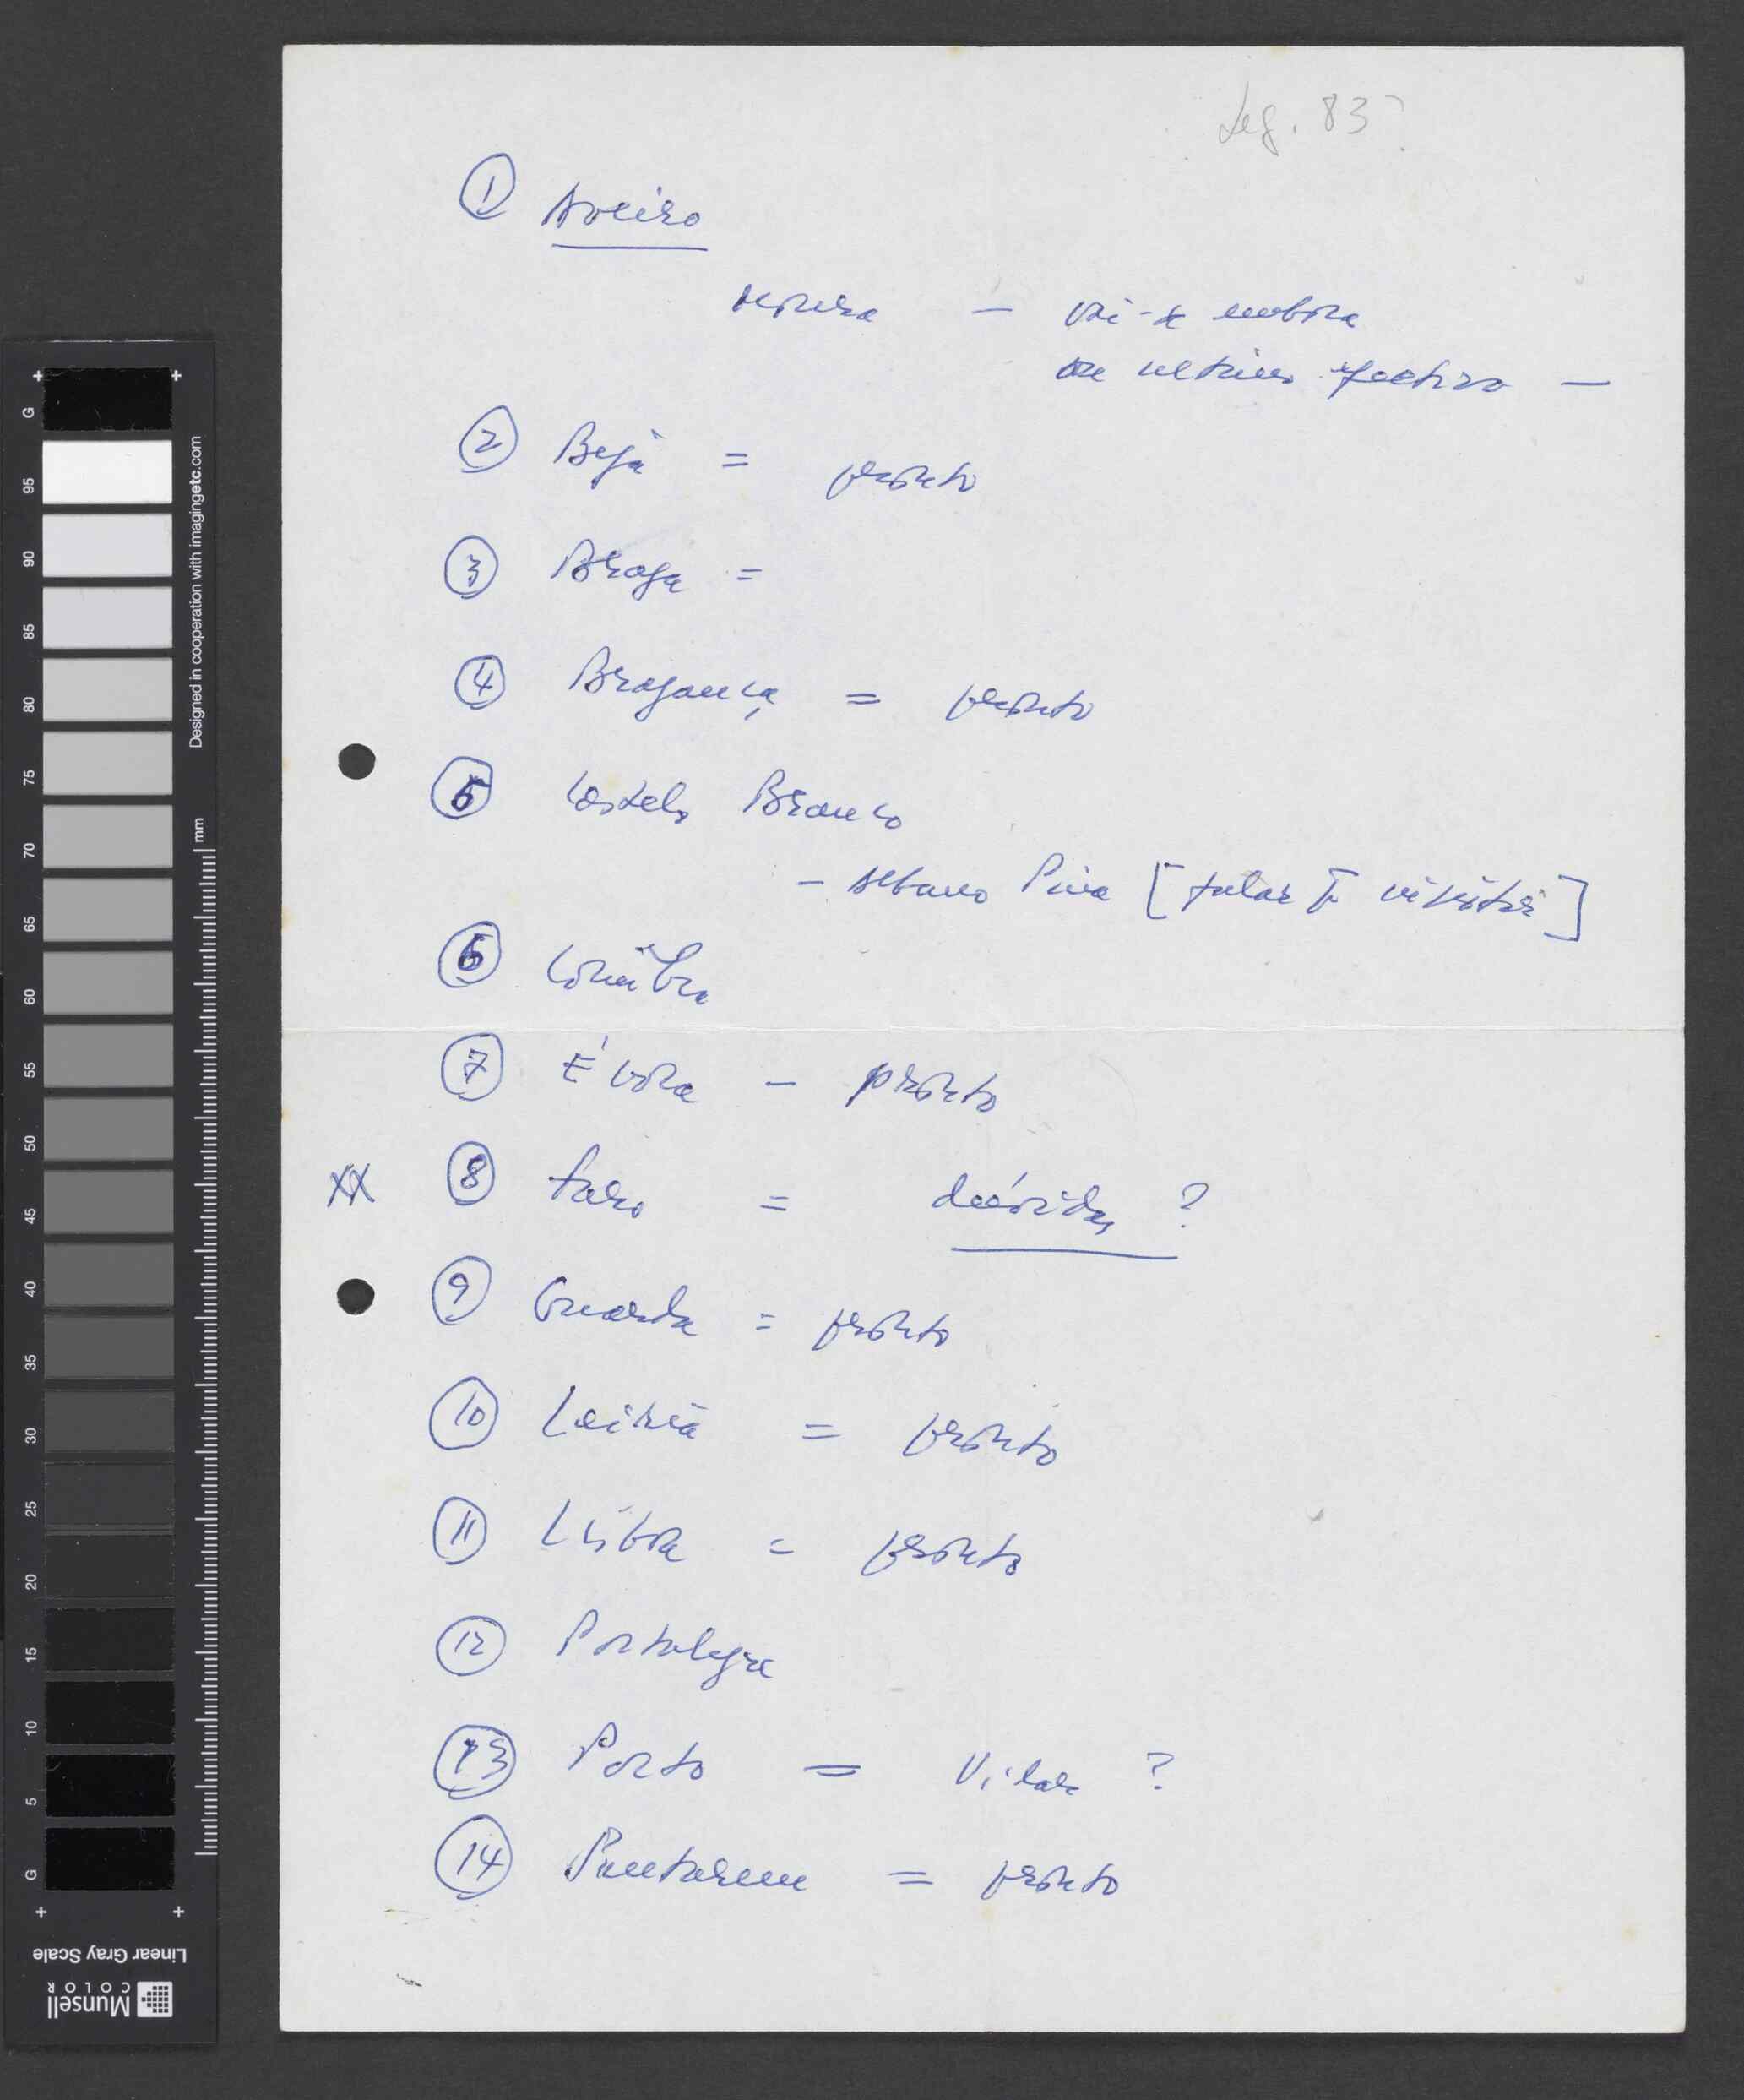 Leg. 83?
① Aveiro
Moura — vai-se embora
ou último efectivo —
② Beja = pronto
③ Braga =
④ Bragança = pronto
⑤ Castelo Branco
– Albano Pina [falar]
⑥ Coimbra
⑦ Évora – pronto
XX ⑧ Faro = dúvidas ?
⑨ Guarda = pronto
⑩ Leiria = pronto
⑪ Lisboa = pronto
⑫ Portalegre
⑬ Porto = Vilar ?
⑭ Santarém = pronto
G
95
90
85
80
75
70
65
60
55
50
45
40
35
30
25
20
15
10
5
G
Designed in cooperation with imagingetc.com
mm
Linear Gray Scale
Munsell
COLOR